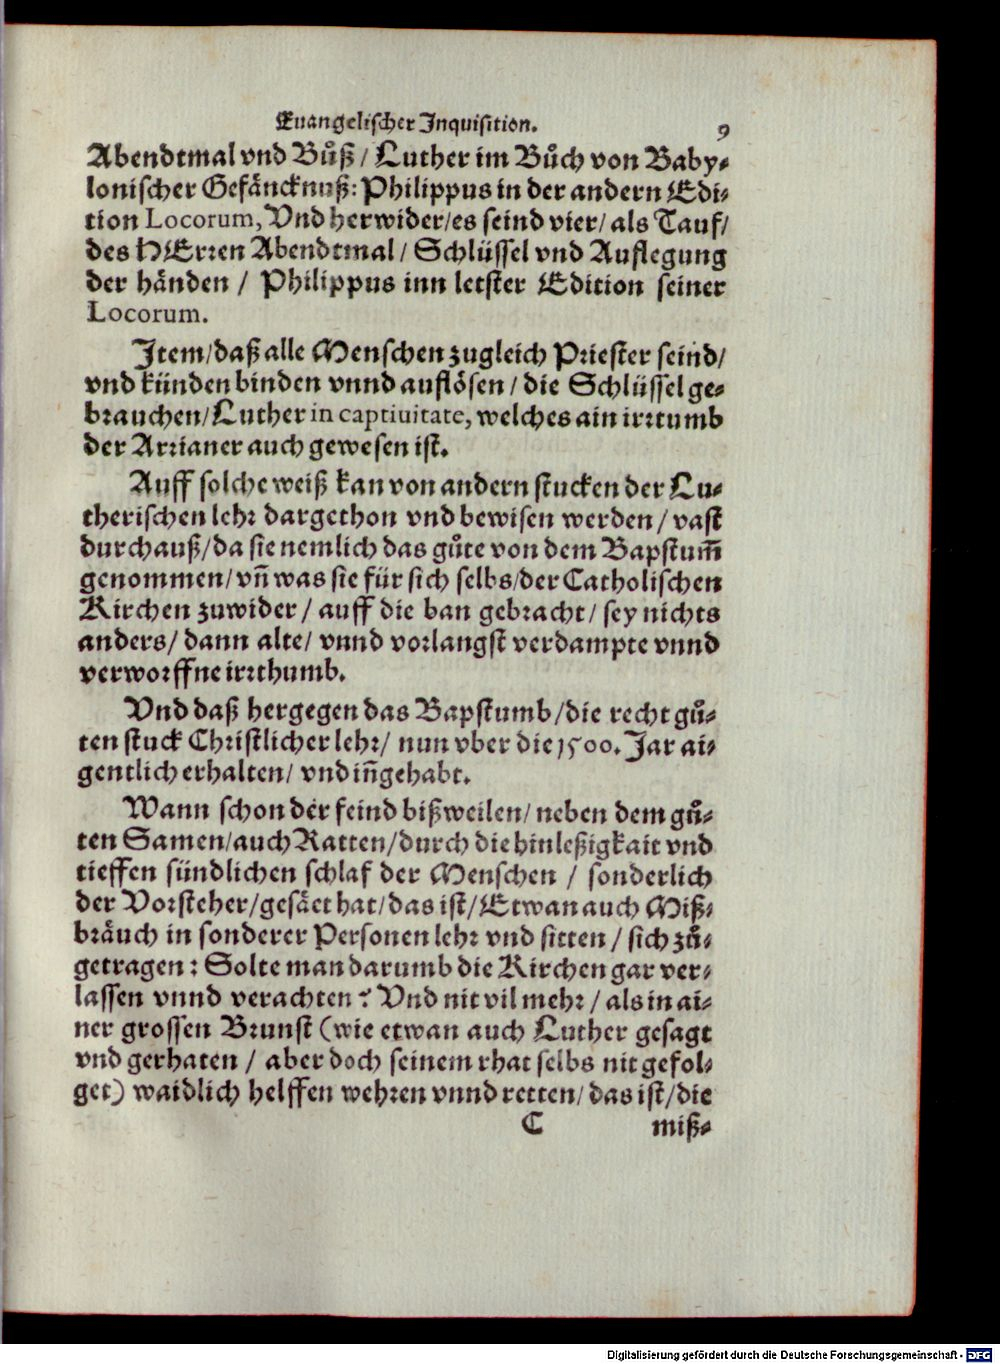 Euangelischer Inquisition. 9
Abendtmal vnd Bůß / Luther im Bůch von Baby-
lonischer Gefäncknuß: Philippus in der andern Edi-
tion Locorum, Vnd herwider/es seind vier/ als Tauf/
des HErren Abendtmal / Schlüssel vnd Auflegung
der händen / Philippus inn letster Edition seiner
Locorum.
Item/daß alle Menschen zugleich Priester seind/
vnd künden binden vnnd auflösen / die Schlüssel ge-
brauchen/Luther in captiuitate, welches ain irrtumb
der Arrianer auch gewesen ist.
Auff solche weiß kan von andern stucken der Lu-
therischen lehr dargethon vnd bewisen werden / vast
durchauß/da sie nemlich das gůte von dem Bapstum̃
genommen/vn̄ was sie für sich selbs/der Catholischen
Kirchen zuwider / auff die ban gebracht / sey nichts
anders/ dann alte/ vnnd vorlangst verdampte vnnd
verworffne irrthumb.
Vnd daß hergegen das Bapstumb/die recht gů-
ten stuck Christlicher lehr/ nun vber die 1500. Jar ai-
gentlich erhalten/ vnd in̄gehabt.
Wann schon der feind bißweilen/ neben dem gů-
ten Samen/auch Ratten/durch die hinleßigkait vnd
tieffen sündlichen schlaf der Menschen / sonderlich
der Vorsteher/gesäet hat/das ist/Etwan auch Miß-
bräuch in sonderer Personen lehr vnd sitten / sich zů-
getragen: Solte man darumb die Kirchen gar ver-
lassen vnnd verachten? Vnd nit vil mehr / als in ai-
ner grossen Brunst (wie etwan auch Luther gesagt
vnd gerhaten / aber doch seinem rhat selbs nit gefol-
get) waidlich helffen wehren vnnd retten/ das ist/die
C miß-
Digitalisierung gefördert durch die Deutsche Forschungsgemeinschaft - DFG